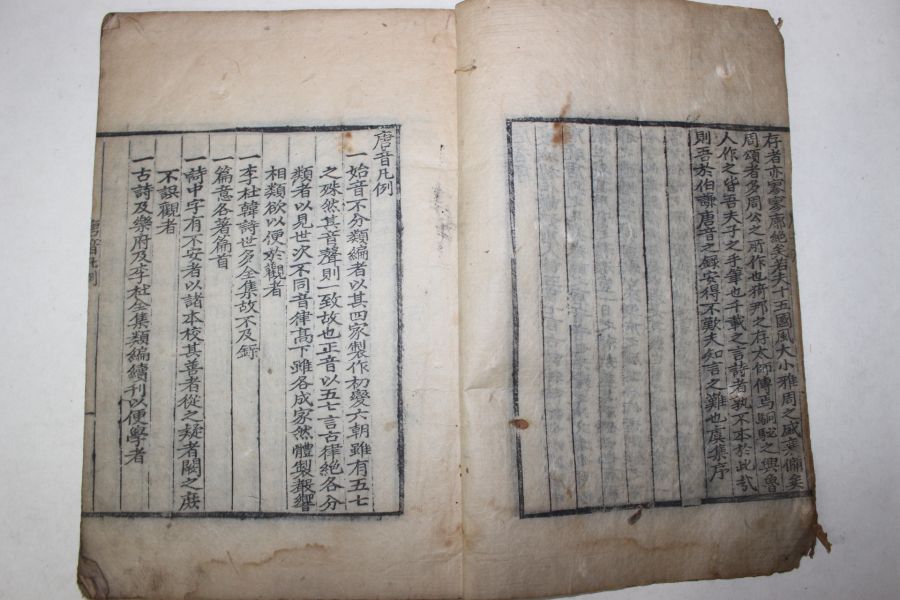 存者亦寥寥 至十五國風大小雅周之盛衰備矣
周頌者多周公之所作也猗那之存太師傳焉駉駜之興魯
人作之皆吾夫子之手筆也千載之言詩者孰不本於此哉
則吾於伯謙唐音之録安得不歎夫知言之難也虞集序
唐音凡例
一始音不分類編者以其四家製作初變六朝雖有五七
之殊然其音聲則一致故也正音以五七言古律絶各分
類者以見世次不同音律高下雖各成家然體製聲響
相類欲以便於觀者
一李杜韓詩世多全集故不及錄
一篇意各著篇首
一詩中字有不安者以諸本校其善者從之疑者闕之庶
不誤觀者
一古詩及樂府及李杜全集類編續刊以便學者